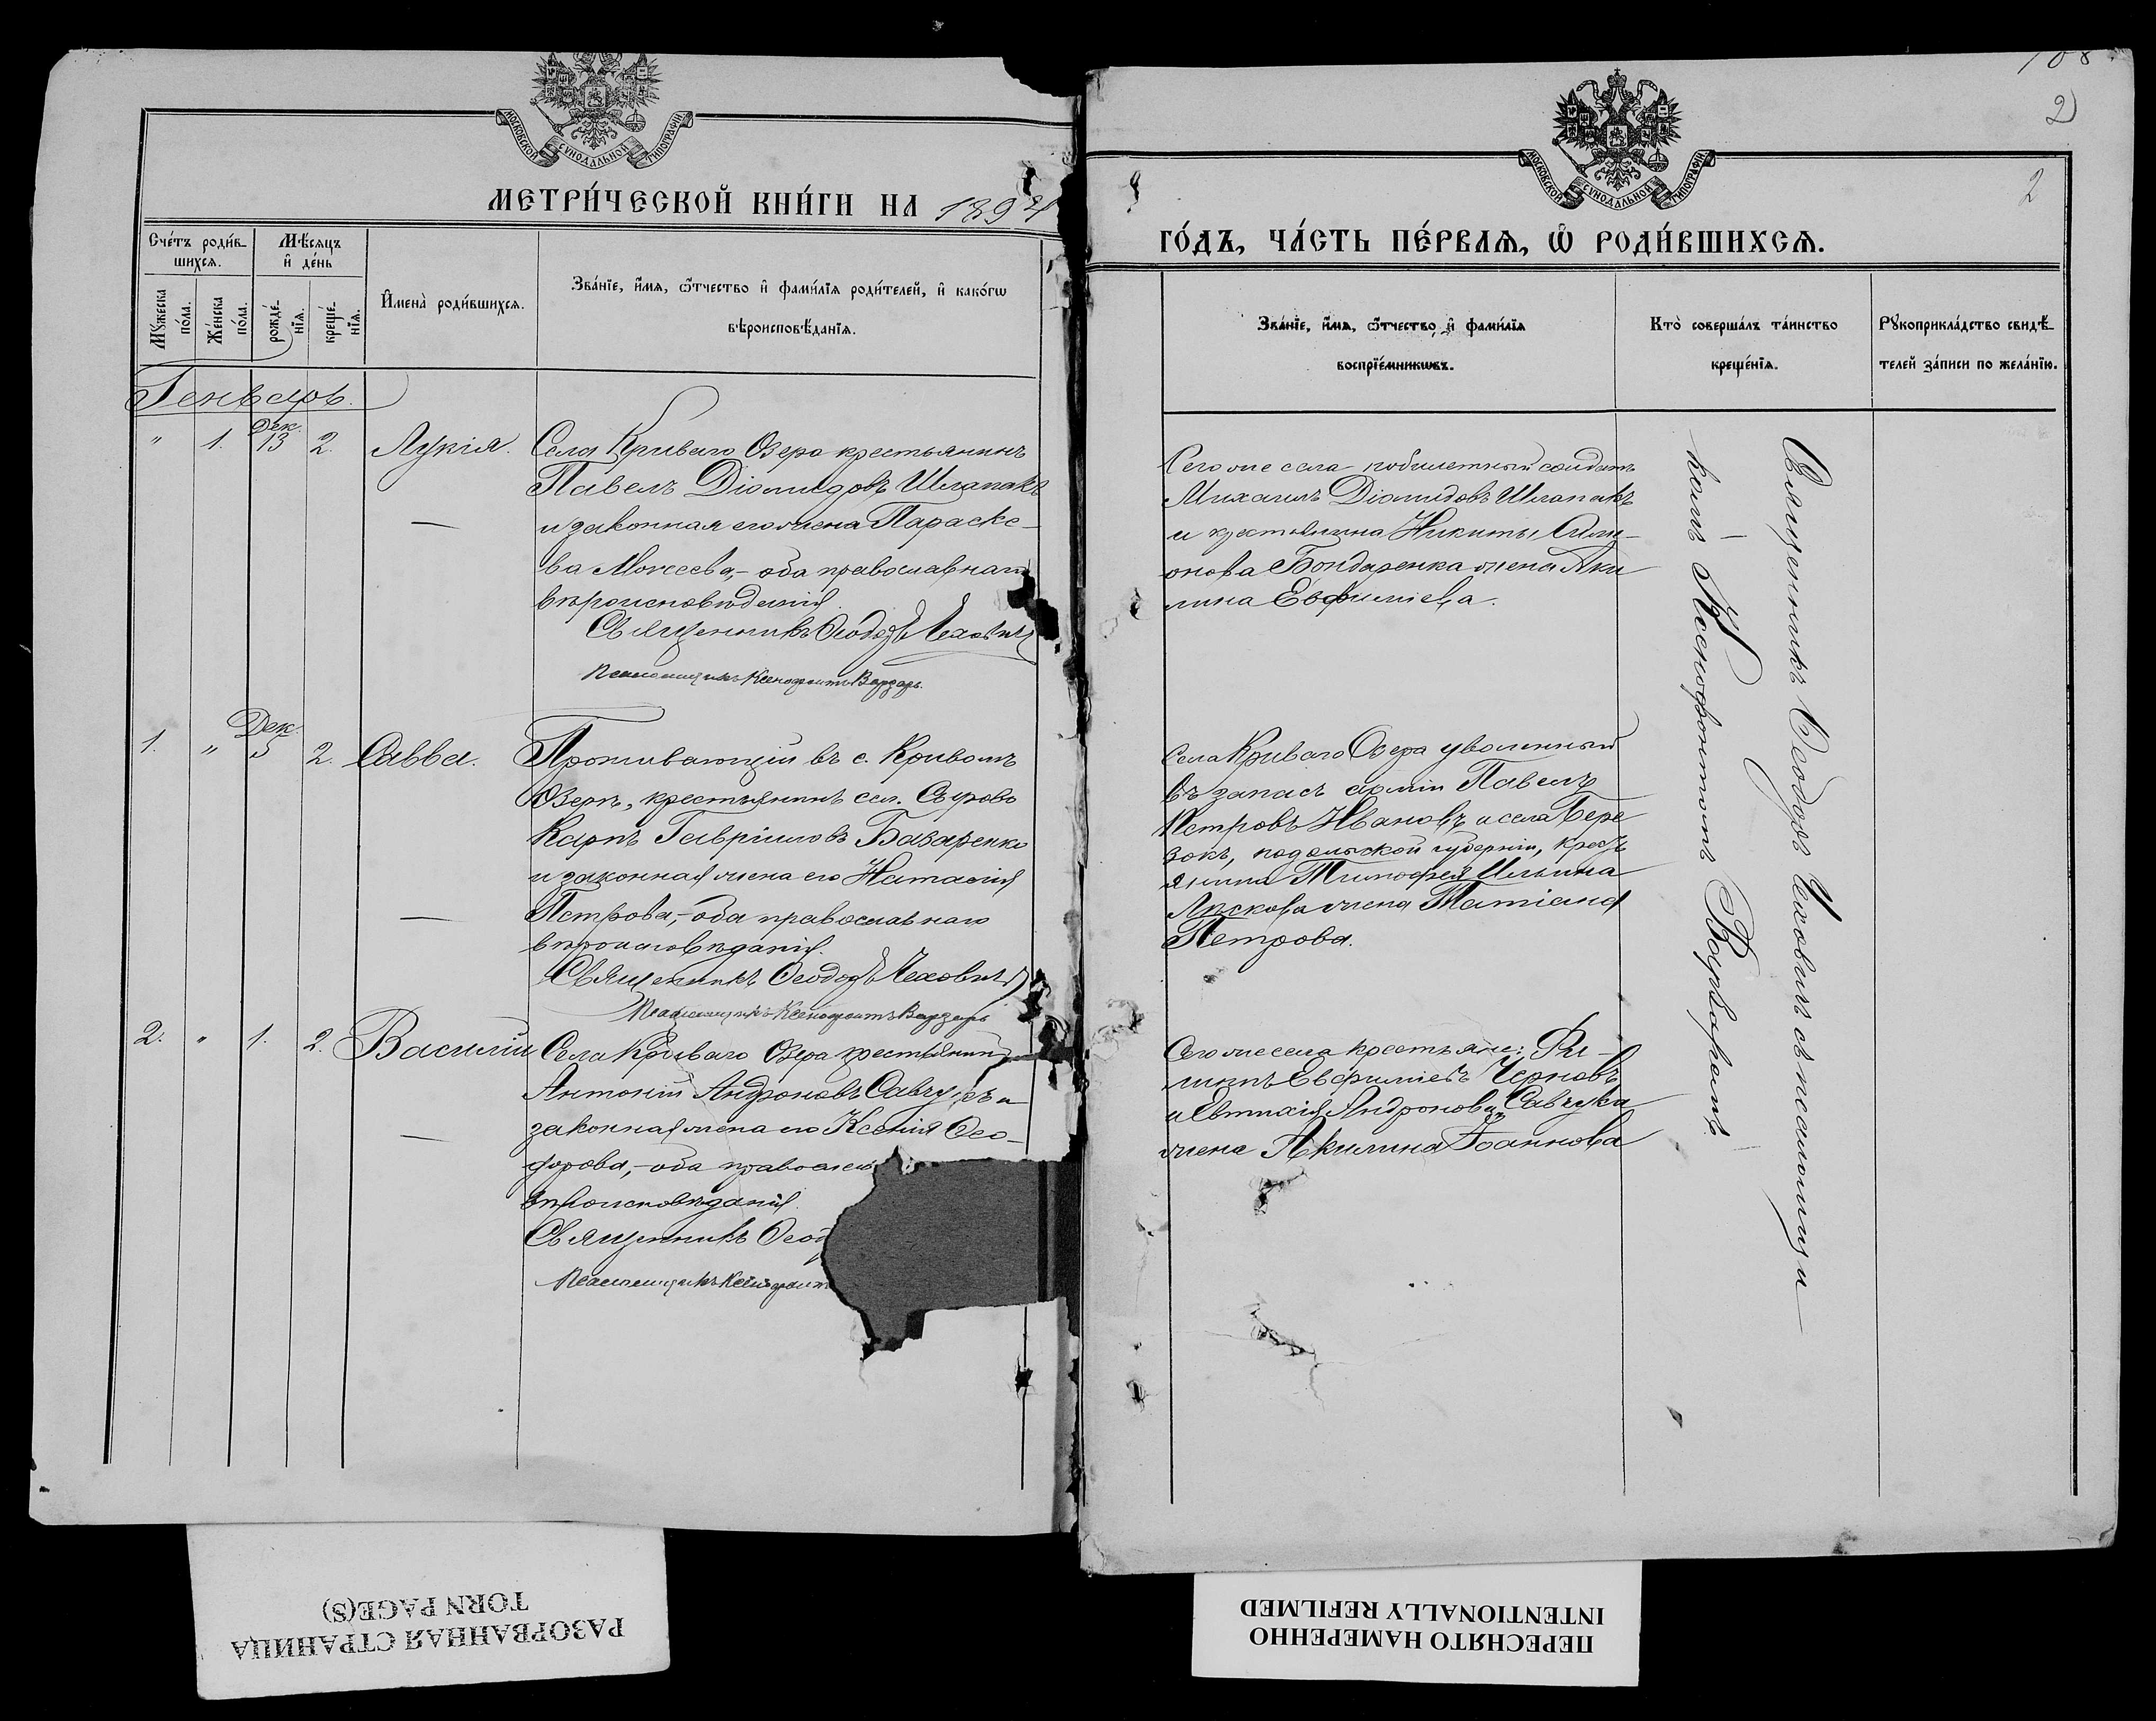 МОСКОВСКОЙ СѴНОДАЛЬНОЙ ТИПОГРАФІИ
МЕТРИ́ЧЕСКОЙ КНИ́ГИ НА 1894
Сче́тъ роди́в-
шихсѧ.
Мѣсѧцъ
и҆ де́нь
Мꙋжеска
по́ла.
Же́нска
по́ла.
рожде́-
нїѧ.
креще́-
нїѧ.
И҆мена̀ роди́вшихсѧ.
Зва́нїе, и҆́мѧ, ѻ҆́тчество и҆ фами́лїѧ роди́телей, и҆ како́гѡ
вѣроисповѣ́данїѧ.
Генварь.
" 1. Дек. 13 2. Лукія.
Села Криваго Озера крестьянинъ
Павелъ Діомидовъ Шлапакъ
и законная его жена Параске-
ва Моисеева,- оба православнаго
вѣроисповѣданія.
Священникъ Ѳеодоръ Чеховичъ
Псаломщикъ Ксенофонтъ Варзарь.
1. " Дек. 5 2. Савва.
Проживающій въ с. Кривомъ
Озерѣ, крестьянинъ сел. Сырово
Карпъ Гавріиловъ Базаренко
и законная жена его Наталія
Петрова,- оба православнаго
вѣроисповѣданія.
Священникъ Ѳеодоръ Чеховичъ
Псаломщикъ Ксенофонтъ Варзарь
2. " 1. 2. Василій
Села Криваго Озера крестьянинъ
Антоній Андроновъ Савчукъ и
законная жена его Ксенія Ѳео-
дорова,- оба правосла
вѣроисповѣданія.
Священникъ Ѳеод
Псаломщикъ Ксенофонт
2
2
МОСКОВСКОЙ СѴНОДАЛЬНОЙ ТИПОГРАФІИ
ГО́ДЪ, ЧА́СТЬ ПЕ́РВАѦ, Ѡ҆ РОДИ́ВШИХСѦ.
Зва́нїе, и҆́мѧ, ѻ҆́тчество, и҆ фами́лїѧ
воспрїе́мникѡвъ.
Кто̀ соверша́лъ та́инство
креще́нїѧ.
Рꙋкоприкла́дство свидѣ́-
телей за́писи по жела́нїю.
Сего же села побилетный солдатъ
Михаилъ Діомидовъ Шлапакъ
и крестьянина Никиты Сим-
онова Бондаренка жена Аки
лина Евфиміева.
Села Криваго Озера уволенный
въ запасъ арміи Павелъ
Петровъ Ивановъ и села Бере
зокъ, подольской губерніи, крест
янина Тимофея Ильина
Лѣскова жена Татіана
Петрова.
Сего же села крестьяне: Фи-
липпъ Евфиміевъ Черновъ
и Евтихія Андронова Савчука
жена Акилина Іоаннова
Священникъ Ѳеодоръ Чеховичъ съ псаломщи-
комъ Ксенофонтомъ Варзаремъ.
РАЗОРВАННАЯ СТРАНИЦА
TORN PAGE(S)
ПЕРЕСНЯТО НАМЕРЕННО
INTENTIONALLY REFILMED